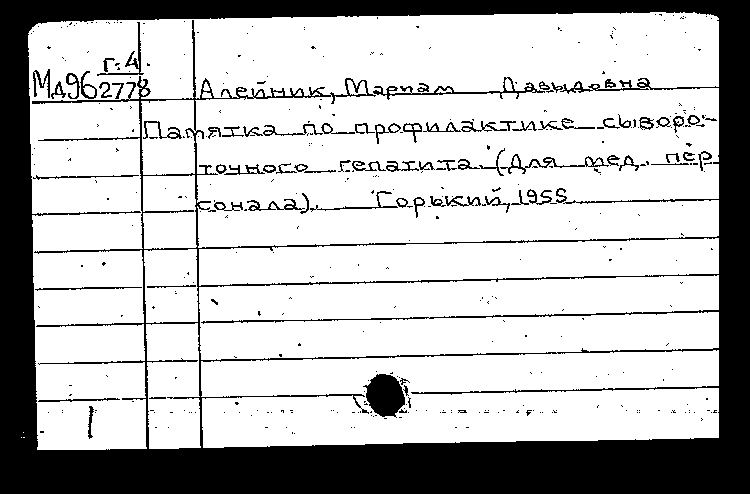 Г:4.
Мд96 2778
Алейник, Мариам Давыдовна
Памятка по профилактике сыворо-
точного гепатита. (Для мед. пер
сонала). Горький, 1955
1